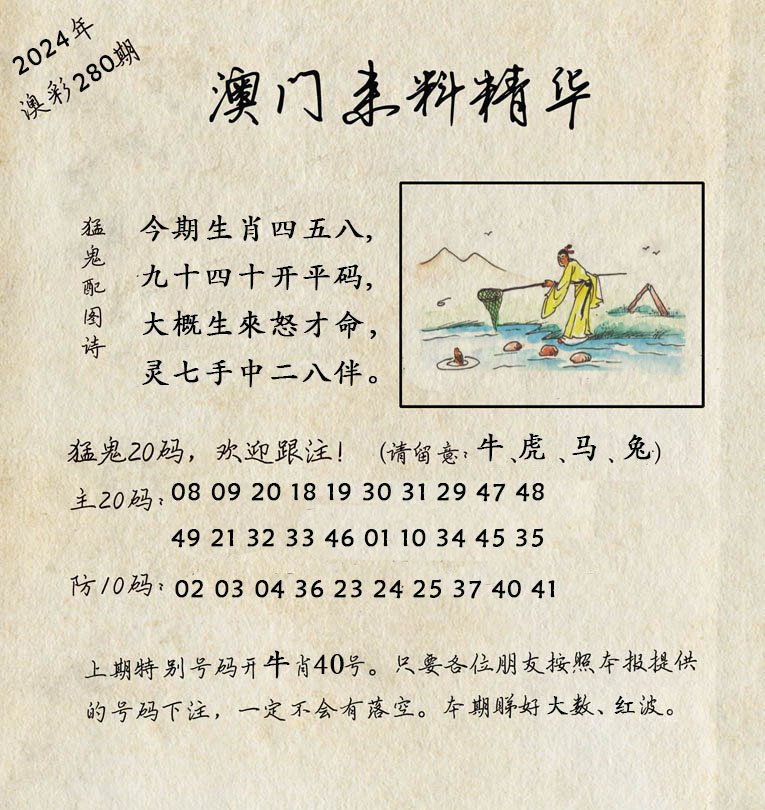 2024年
澳彩280期
澳门来料精华
猛鬼配图诗
今期生肖四五八，
九十四十开平码，
大概生來怒才命，
灵七手中二八伴。
猛鬼20码，欢迎跟注！（请留意：牛、虎、马、兔）
主20码：08 09 20 18 19 30 31 29 47 48
49 21 32 33 46 01 10 34 45 35
防10码：02 03 04 36 23 24 25 37 40 41
上期特别号码开牛肖40号。只要各位朋友按照本报提供
的号码下注，一定不会有落空。本期睇好大数、红波。